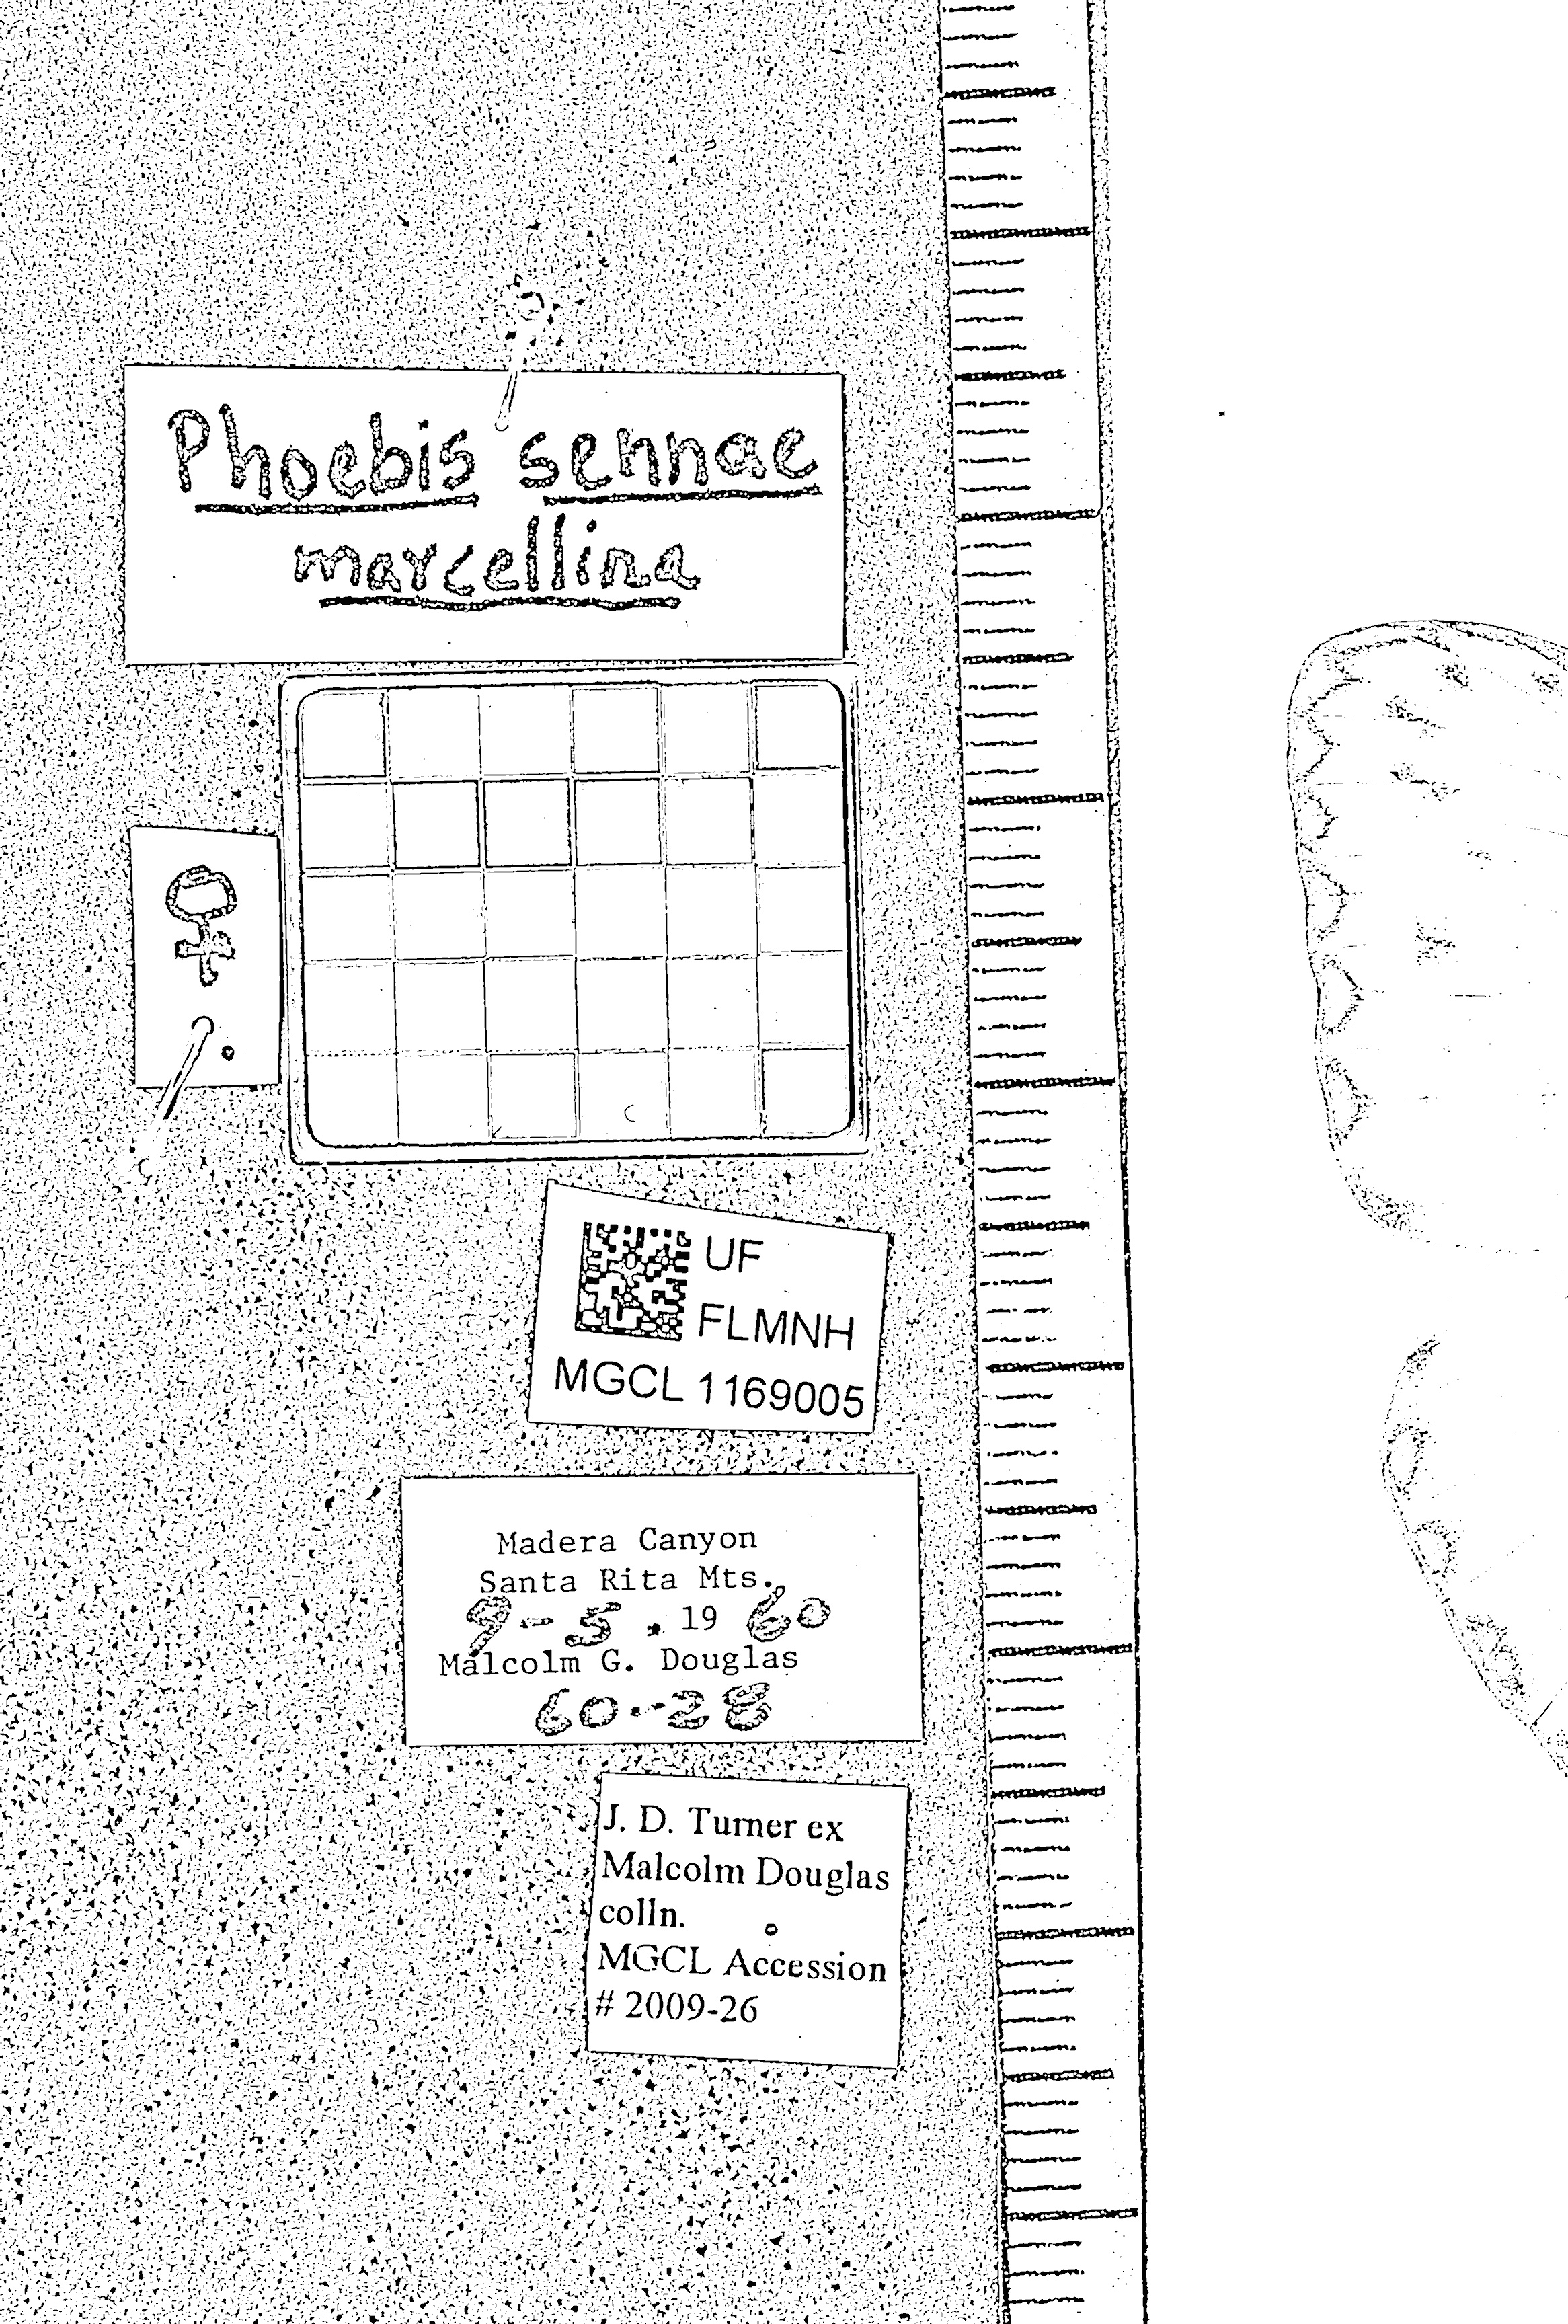 Phoebis sennae
marcellina
♀
UF
FLMNH
MGCL 1169005
Madera Canyon
Santa Rita Mts.
9-5 . 19 60
Malcolm G. Douglas
60-28
J. D. Turner ex
Malcolm Douglas
colln.
MGCL Accession
# 2009-26